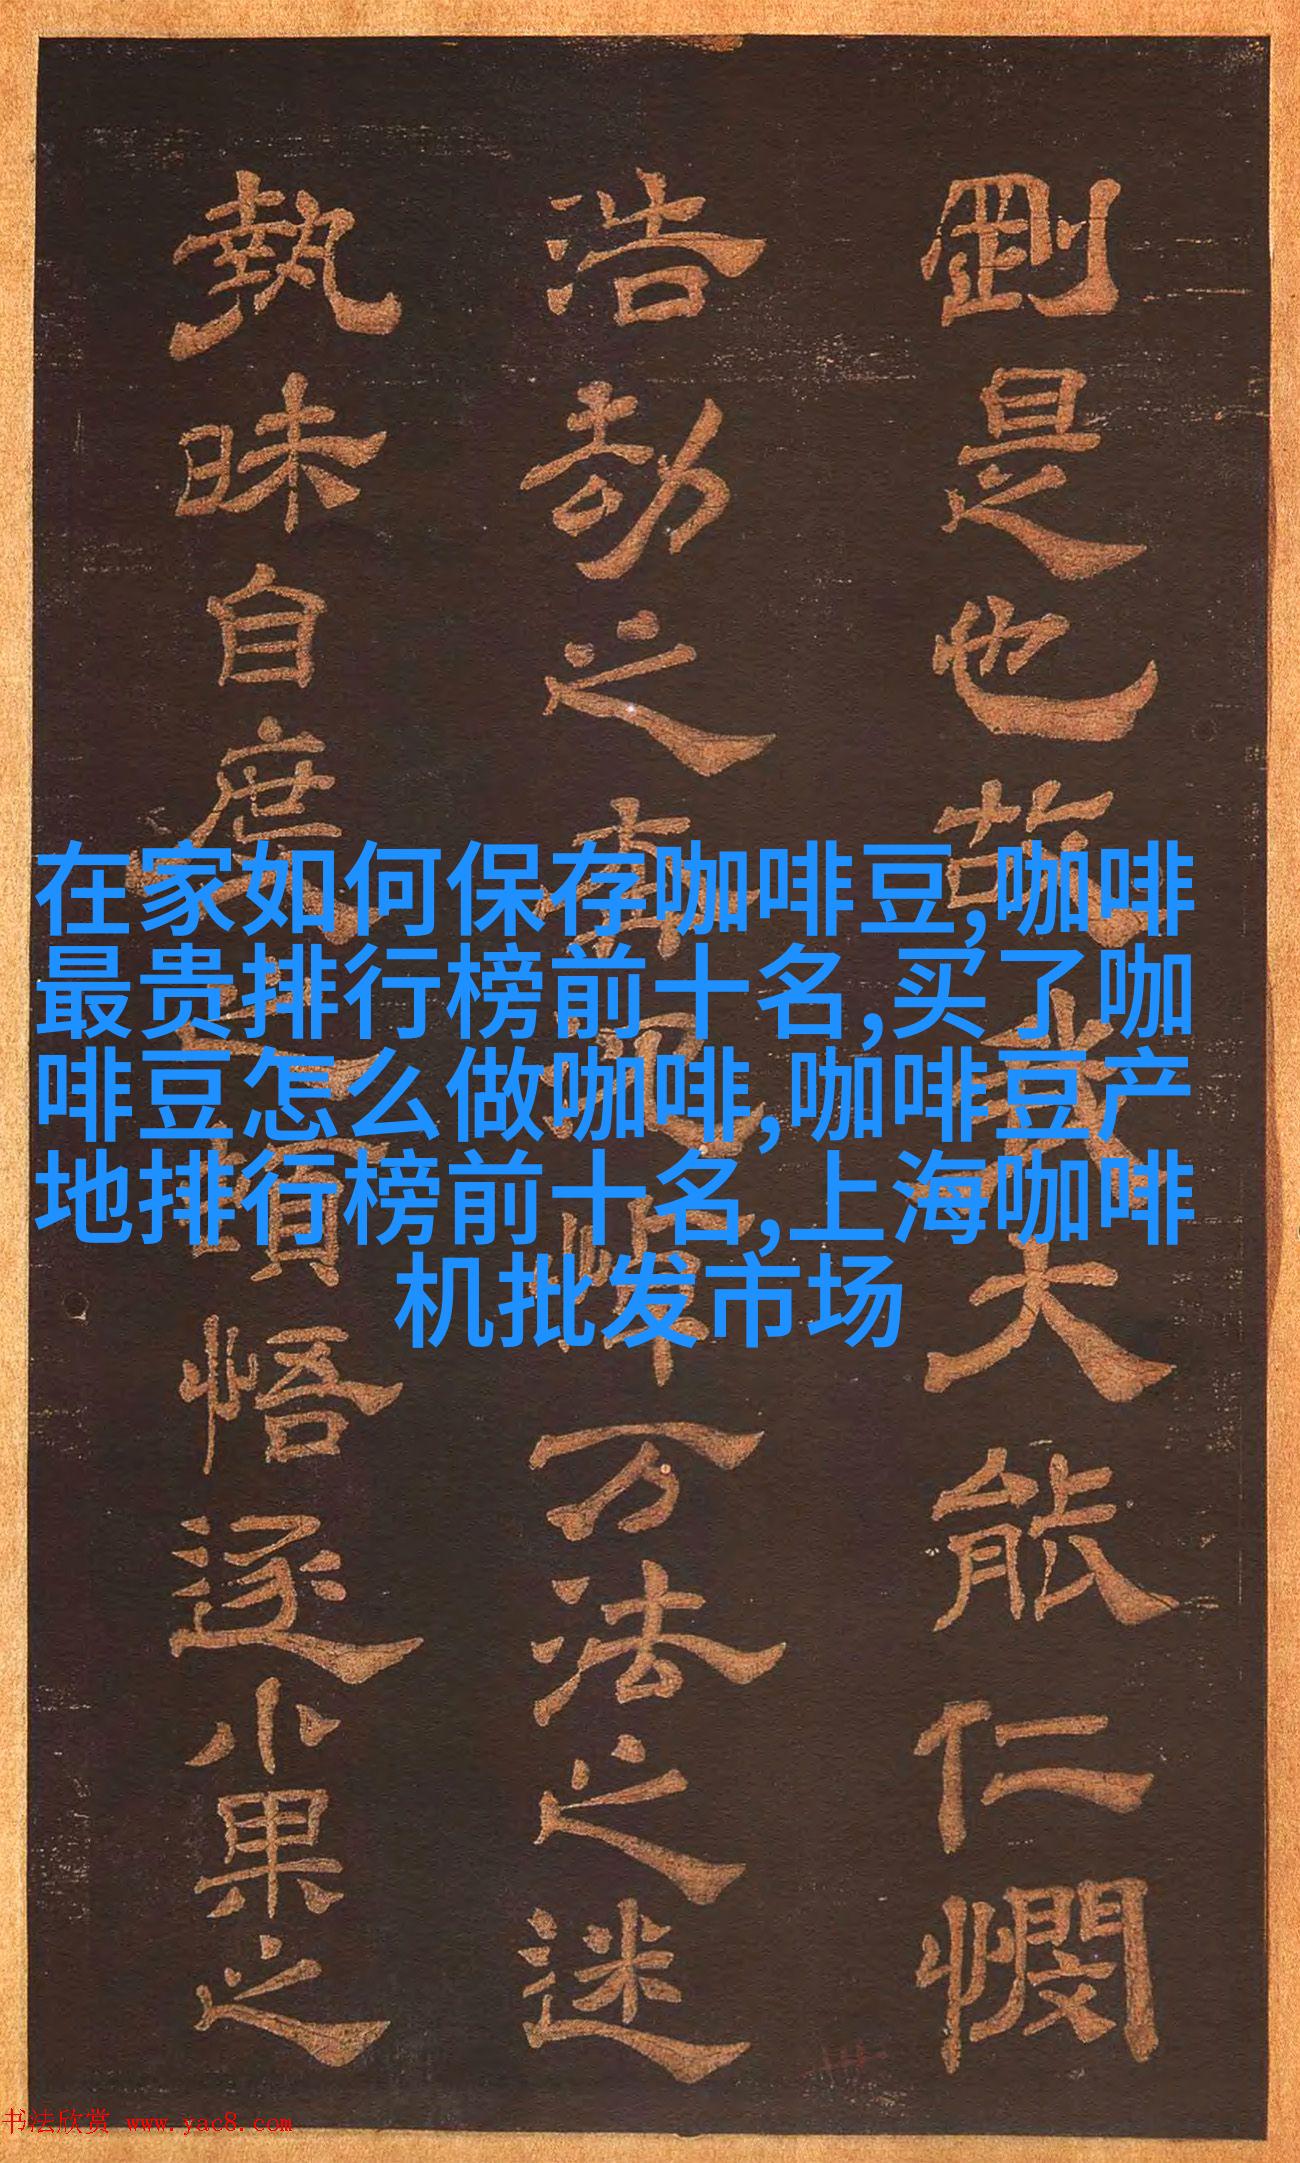 剛是也故我大能仁憫
浩劫之悼万法之迷
執昧自頓悟逐小果之
在家如何保存咖啡豆,咖啡
最贵排行榜前十名,买了咖
啡豆怎么做咖啡,咖啡豆产
地排行榜前十名,上海咖啡
机批发市场
书法欣赏 www.yac8.com